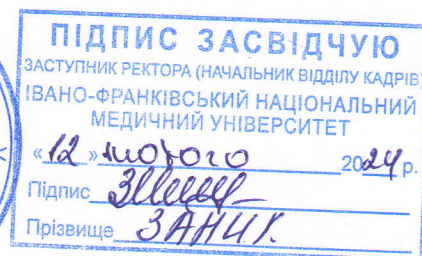 ПІДПИС ЗАСВІДЧУЮ
ЗАСТУПНИК РЕКТОРА (НАЧАЛЬНИК ВІДДІЛУ КАДРІВ)
ІВАНО-ФРАНКІВСЬКИЙ НАЦІОНАЛЬНИЙ
МЕДИЧНИЙ УНІВЕРСИТЕТ
«12» лютого 2024 р.
Підпис
Прізвище